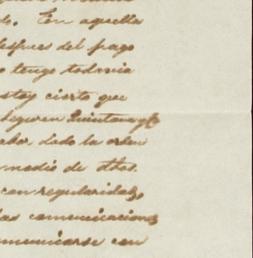 do. En aquella
despues del pago
o tengo todavia
estoy cierto que
Seguren Quintana y Cª
haber dado la orden
medio de dhos.
con regularidad,
las comunicaciones
comunicarse con